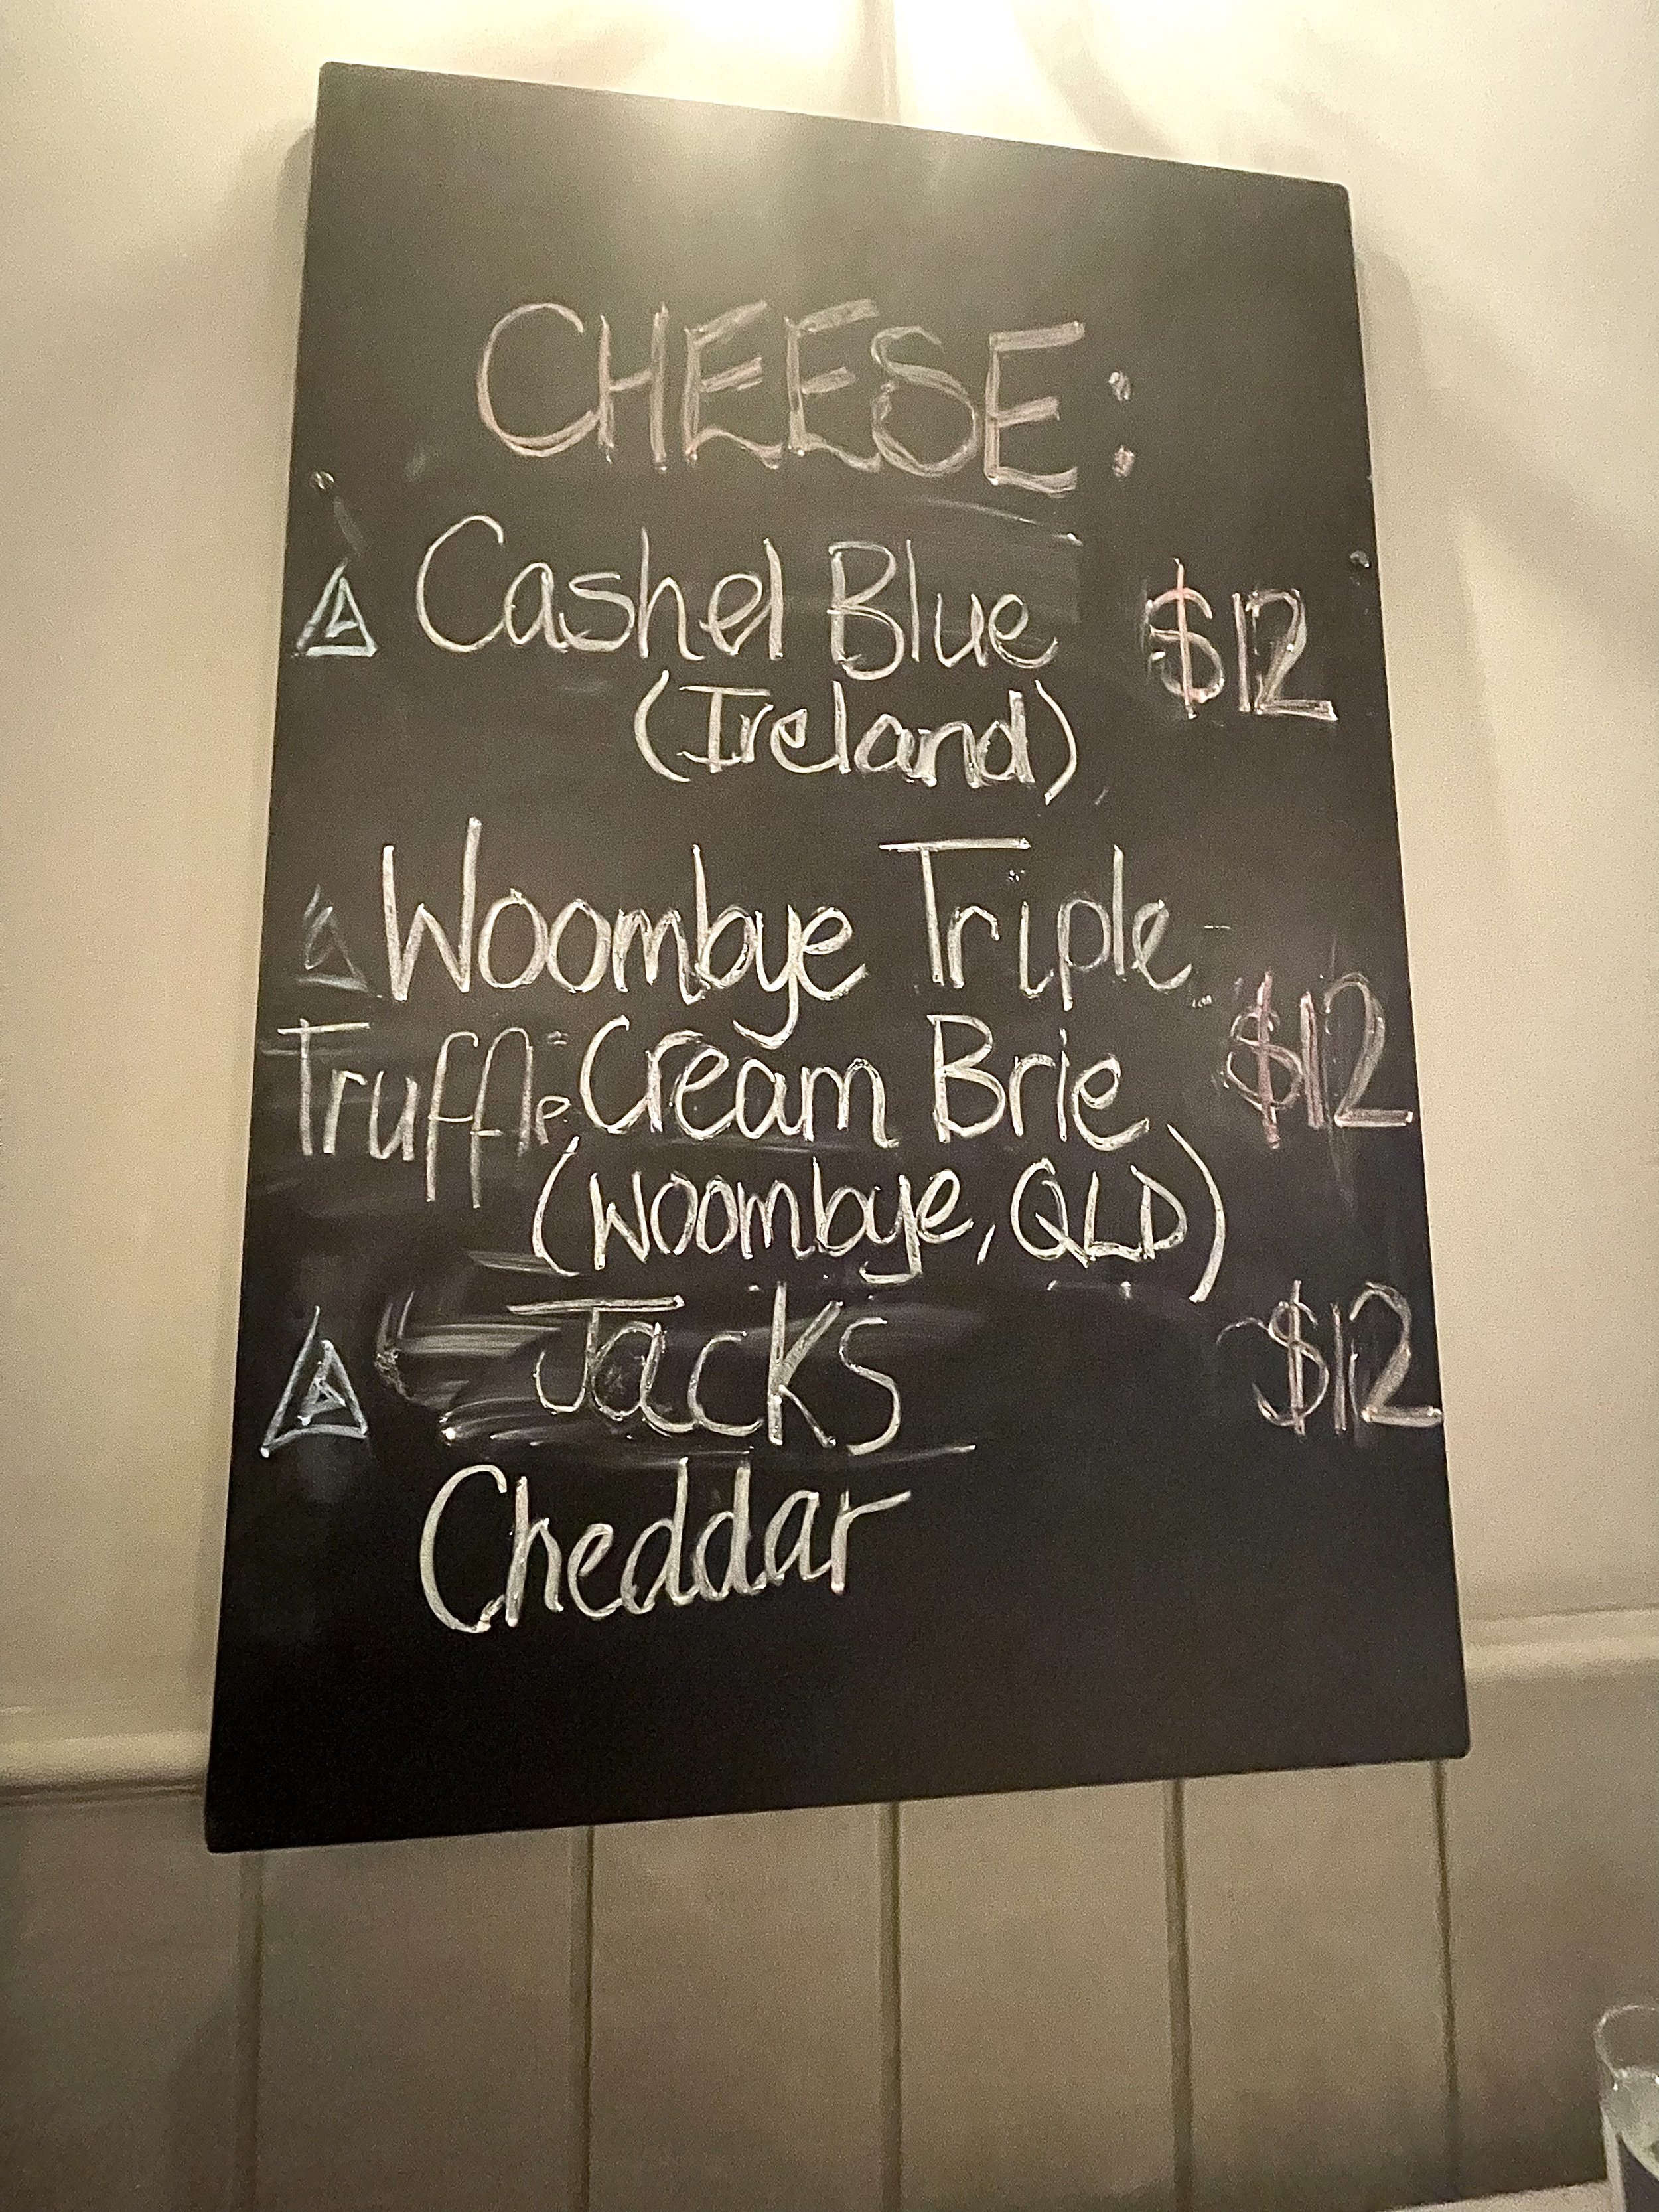 CHEESE:
Cashel Blue $12
(Ireland)
Woombye Triple
Truffle Cream Brie $12
(Woombye, QLD)
Jacks $12
Cheddar